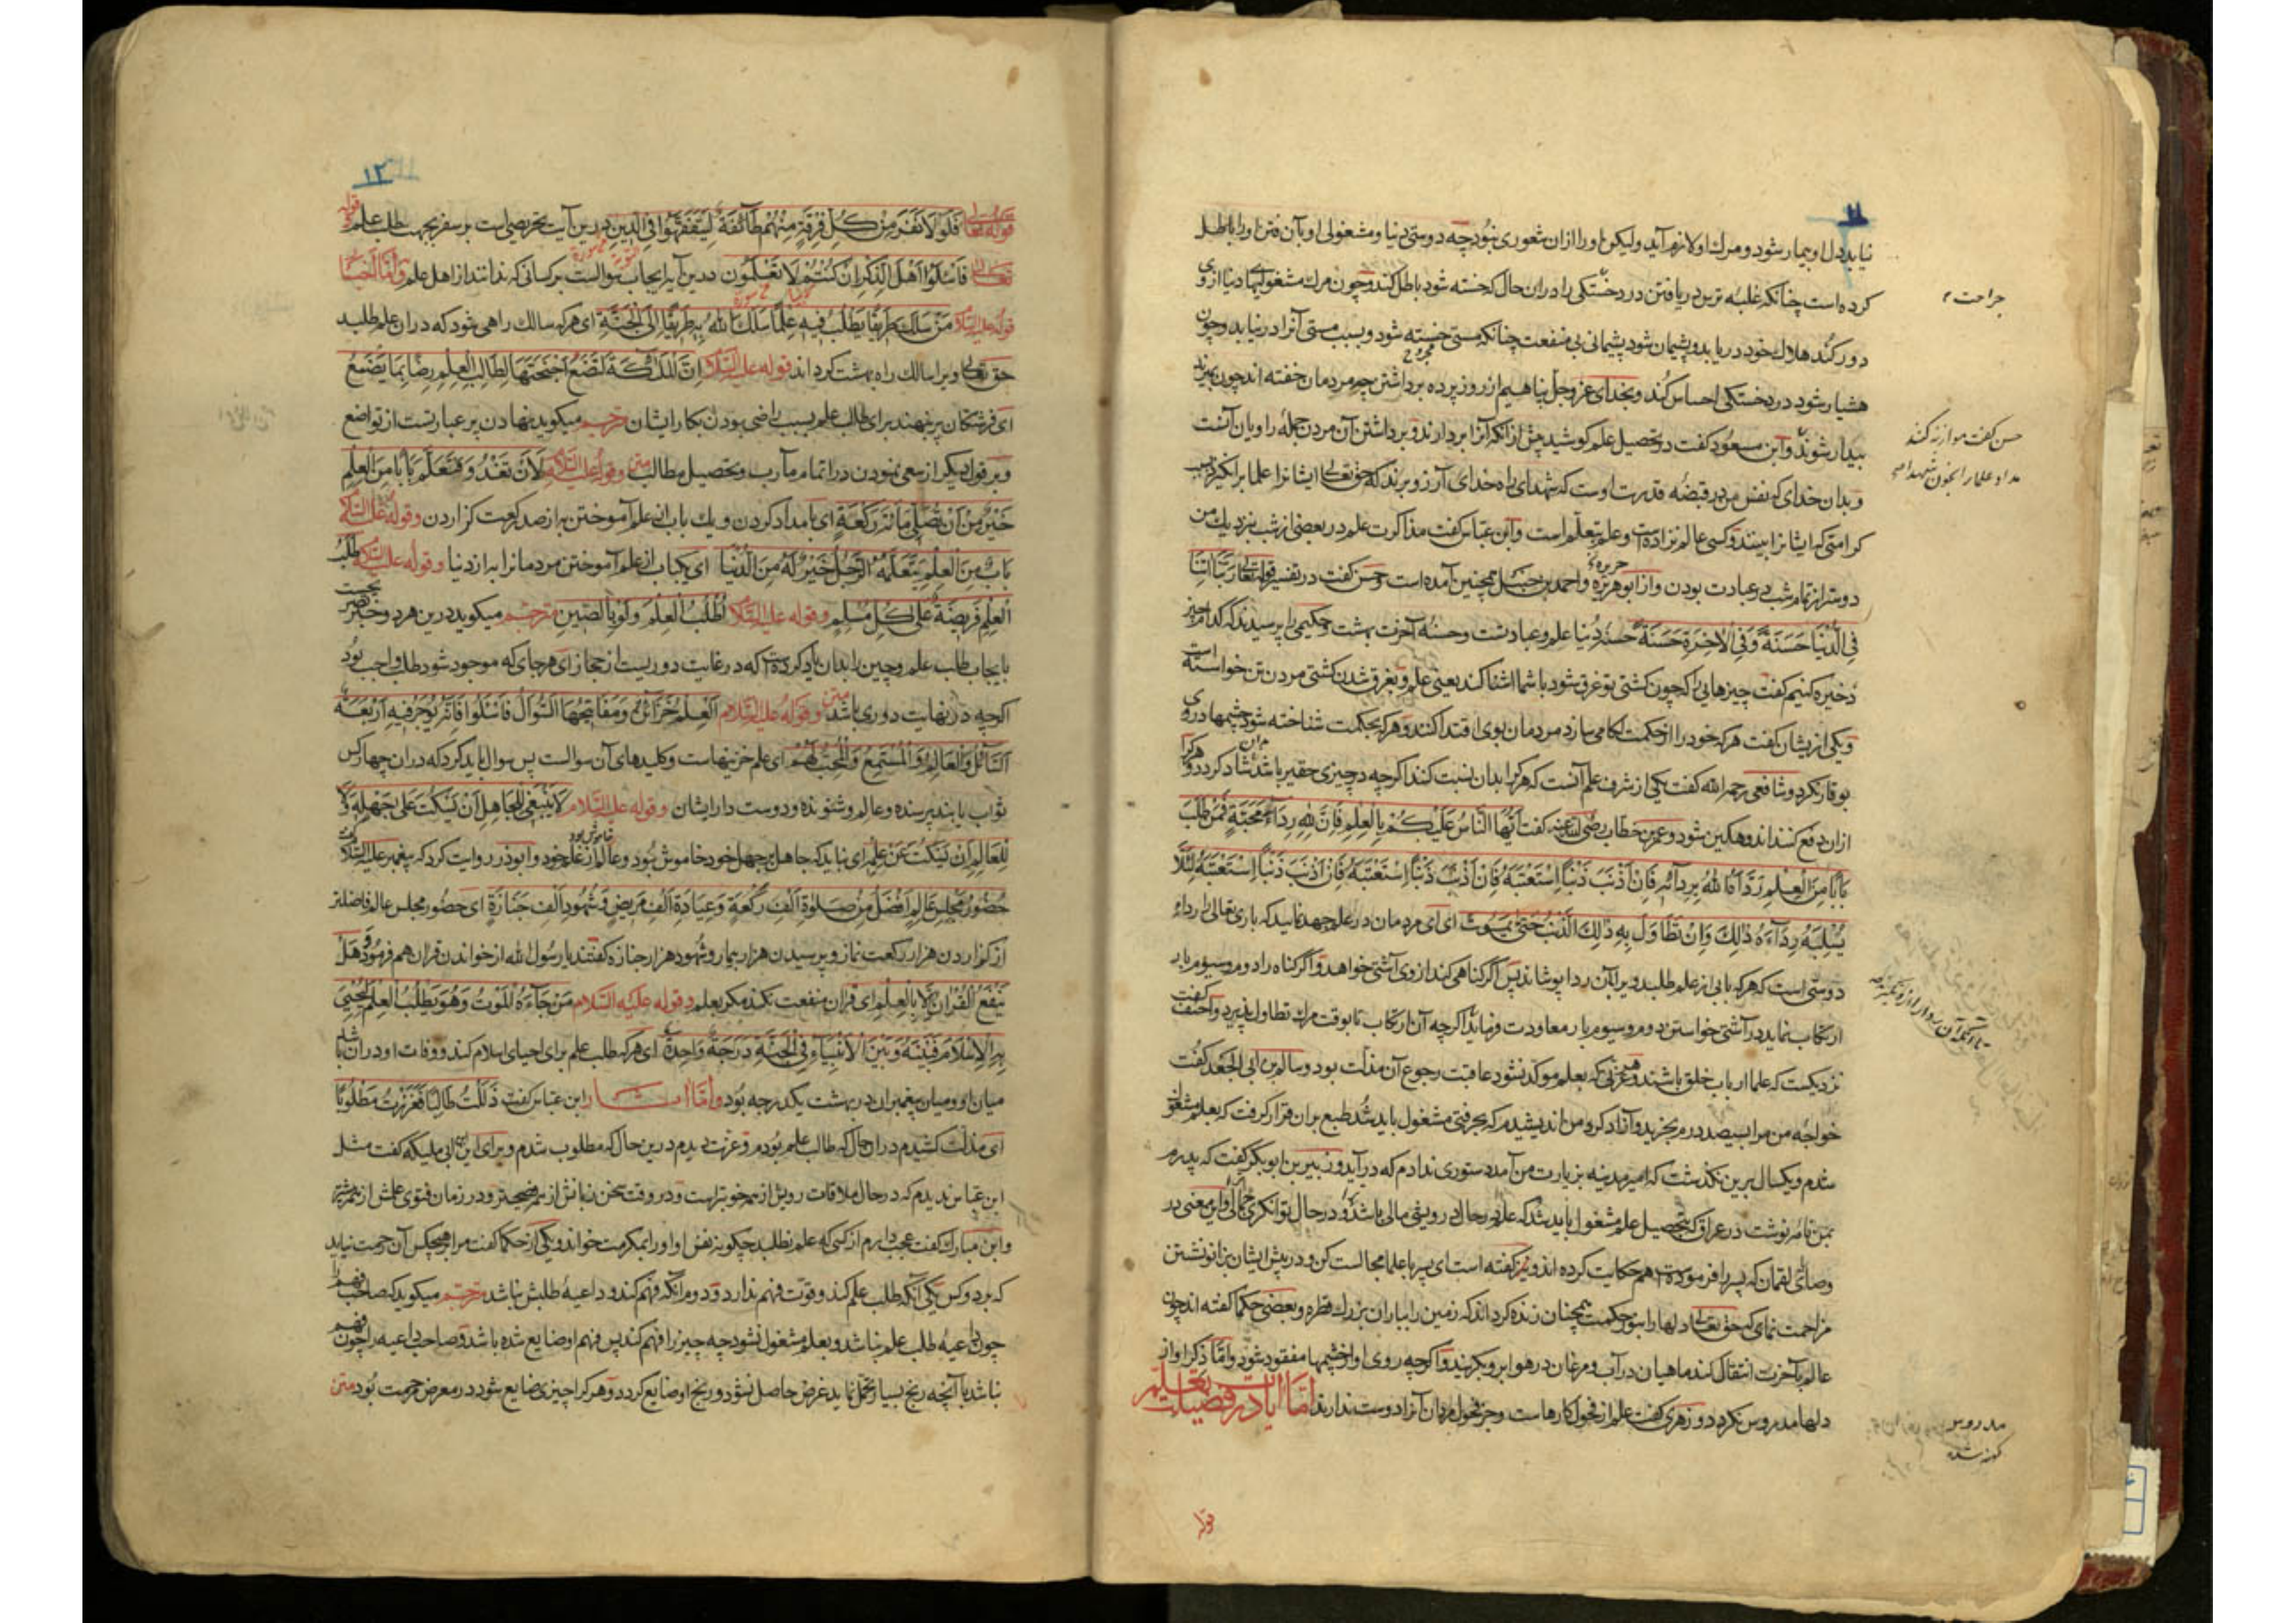 ۱۱
نیابد دل او بیمار شود و مرک او لازم آید ولیکن او را ازان شعوری نبود چه دوستی دنیا و مشغولی او بآن فتن او را باطل
کرده است چنانکه غلبه ترس دریافتن درد خستکی را دران حال که خسته شود باطل کند و چون مرک مشغولیهاء دنیا از وی
دور کند هلاک خود دریابد و پشیمان شود پشیمانی بی منفعت چنانکه مستی خسته شود و بسبب مستی آنرا درنیابد و چون
هشیار شود درد خستکی احساس کند و بخدای عز و جل پناهیم از روز پرده برداشتن چه مردمان خفته اند چون بمیرند
بیدار شوند و ابن مسعود کفت در تحصیل علم کوشید پیش ازانکه آنرا بردارند و برداشتن آن مردن جمله راویان آنست
و بدان خدای که نفس من در قبضه قدرت اوست که شهدای راه خدای آرزو برند که حق تعالی ایشانرا علما برانکیزد بسبب
کرامتی که ایشانرا بینند و کسی عالم نزاده است و علم بتعلم است و ابن عباس کفت مذاکرت علم در بعضی از شب نزدیک من
دوستر از تمام شب در عبادت بودن و از ابو هریره و احمد بن حنبل همچنین آمده است و حسن کفت در تفسیر قوله تعالی ربنا اتنا
فی الدنیا حسنة و فی الاخرة حسنة حسنه دنیا علم و عبادتست و حسنه آخرت بهشت و حکیمی را پرسیدند که کدام چیز
ذخیره کنیم کفت چیزهایی را که چون کشتی تو غرق شود با شما آشنا کند یعنی علم و بغرق شدن کشتی مردن تن خواسته است
و یکی ازیشان کفت هر که خود را از حکمت لکامی سازد مردمان بوی اقتدا کنند و هر که بحکمت شناخته شود چشمها در وی
بوقار نکرد و شافعی رحمه الله کفت یکی از شرف علم آنست که هر کرا بدان نسبت کنند اکرچه در چیزی حقیر باشد شاد کردد و هر کرا
ازان دفع کنند اندوهکین شود و عمر بن خطاب رضی الله عنه کفت ایها الناس علیکم بالعلم فان لله رداء محبة فمن طلب
بابا من العلم رداه الله بردائه فان اذنب ذنبا استعتبه فان اذنب ذنبا استعتبه فان اذنب ذنبا استعتبه لئلا
یسلبه رداءه ذلک و ان تطاول به ذلک الذنب حتی یموت ای ای مردمان در علم جهد نمایید که باری تعالی را رداء
دوستی است که هر که بابی از علم طلبد ویرا بآن ردا پوشاند پس اگر کناهی کند از وی آشتی خواهد و اگر کناه را دوم و سیوم بار
ارتکاب نماید در آشتی خواستن دوم و سیوم بار معاودت فرماید اکرچه آن ارتکاب تا بوقت مرک تطاول پذیرد و احنف کفت
نزدیکست که علما ارباب خلق باشند و هر عزتی که بعلم موکد نشود عاقبت رجوع آن مذلت بود و سالم بن ابی الجعد کفت
خواجه من مرا بسیصد درم بخرید و آزاد کرد من اندیشیدم که بحرفتی مشغول باید شد طبع بران قرار کرفت که بعلم مشغول
شدم و یکسال برین نکذشت که امیر مدینه بزیارت من آمد دستوری ندادم که درآید و زبیر بن ابو بکر کفت که پدرم
بمن نامه نوشت در عراق که بتحصیل علم مشغول باید شد که علم در حال درویشی مالی باشد و در حال توانکری جمالی و این معنی در
وصایای لقمان که پسر را فرموده است هم حکایت کرده اند و نیز کفته است ای پسر با علما مجالست کن و در پیش ایشان بزانو نشستن
مزاحمت نمای که حق تعالی دلها را بنور حکمت همچنان زنده کرداند که زمین را بباران بزرک قطره و بعضی حکما کفته اند چون
عالم بآخرت انتقال کند ماهیان در آب و مرغان در هوا برو بکریند و اکرچه روی او از چشمها مفقود شود و اما ذکر او از
دلها مدروس نکردد و زهری کفت علم از فحول کارهاست و جز فحول مردان آنرا دوست ندارند اما ایات در فضیلت تعلم
قوله
جراحت
حسن کفت موازنه کنند
مداد علما را بخون شهدا
مدروس
کهنه شده
۱۲
قوله تعالی فلولا نفر من کل فرقة منهم طائفة لیتفقهوا فی الدین درین آیت تحریصی است بر سفر بجهت طلب علم قوله
تعالی فاسئلوا اهل الذکر ان کنتم لا تعلمون درین آیه ایجاب سوالست بر کسانی که ندانند از اهل علم و اما الاخبار
قوله علیه السلام من سلک طریقا یطلب فیه علما سلک الله به طریقا الی الجنة ای هر که سالک راهی شود که دران علم طلبد
حق تعالی ویرا سالک راه بهشت کرداند قوله علیه السلام ان الملائکة لتضع اجنحتها لطالب العلم رضا بما یصنع
ای فرشتکان پر بنهند برای طالب علم بسبب راضی بودن بکار ایشان مترجم میکوید نهادن پر عبارتست از تواضع
و بر قول دیکر از سعی نمودن در اتمام مآرب و تحصیل مطالب متن و قوله علیه السلام لان تغدو فتعلم بابا من العلم
خیر من ان تصلی مائة رکعة ای بامداد کردن و یک باب از علم آموختن به از صد رکعت کزاردن و قوله علیه السلام
باب من العلم یتعلمه الرجل خیر له من الدنیا ای یکباب از علم آموختن مردمانرا به از دنیا و قوله علیه السلام طلب
العلم فریضة علی کل مسلم و قوله علیه السلام اطلب العلم ولو بالصین مترجم میکوید درین هر دو خبر
بایجاب طلب علم و چین را بدان یاد کرده است که در غایت دوریست از حجاز ای هر جای که موجود شود طلب واجب بود
اکرچه در نهایت دوری باشد متن و قوله علیه السلام العلم خزائن و مفاتیحها السوال فاسئلوا فانه یوجر فیه اربعة
السائل و العالم و المستمع و المحب لهم ای علم خزینهاست و کلیدهای آن سوالست پس سوال باید کرد که دران چهار کس
ثواب یابند پرسنده و عالم و شنونده و دوست دار ایشان و قوله علیه السلام لا ینبغی للجاهل ان یسکت علی جهله و لا
للعالم ان یسکت عن علمه ای نباید که جاهل بر جهل خود خاموش بود و عالم از علم خود و ابوذر روایت کرد که پیغمبر علیه السلام کفت
حضور مجلس عالم افضل من صلوة الف رکعة و عیادة الف مریض و شهود الف جنازة ای حضور مجلس عالم فاضلتر
از کزاردن هزار رکعت نماز و پرسیدن هزار بیمار و شهود هزار جنازه کفتند یا رسول الله از خواندن قران هم فرمود و هل
ینفع القران الا بالعلم ای قران منفعت نکند مکر بعلم و قوله علیه السلام من جاءه الموت و هو یطلب العلم لیحیی
به الاسلام فبینه و بین الانبیاء فی الجنة درجة واحدة ای هر که طلب علم برای احیای اسلام کند و وفات او دران باشد
میان او و میان پیغمبران در بهشت یکدرجه بود و اما اثار ابن عباس کفت ذللت طالبا فعززت مطلوبا
ای مذلت کشیدم دران حال که طالب علم بودم و عزت دیدم درین حال که مطلوب شدم و برای این ابن ابی ملیکه کفت مثل
ابن عباس ندیدم که در حال ملاقات رویش از همه خوبتر است و در وقت سخن زبانش از همه فصیحتر و در زمان فتوی علمش از همه بیشتر
و ابن مبارک کفت عجب دارم از کسی که علم نطلبد چکونه نفس او او را بمکرمت خواند و یکی از حکما کفت مرا بر هیچکس آن رحمت نیاید
که بر دو کس یکی آنکه طلب علم کند و قوت فهم ندارد و دوم آنکه فهم کند و داعیه طلبش نباشد مترجم میکوید که صاحب فهم را
چون داعیه طلب علم نباشد و بعلم مشغول نشود چه چیز را فهم کند پس فهم او ضایع شده باشد و صاحب داعیه را چون فهم
نباشد بآنچه رنج بسیار تحمل نماید غرض حاصل نشود و رنج او ضایع کردد و هر کرا چیزی ضایع شود در معرض رحمت بود متن